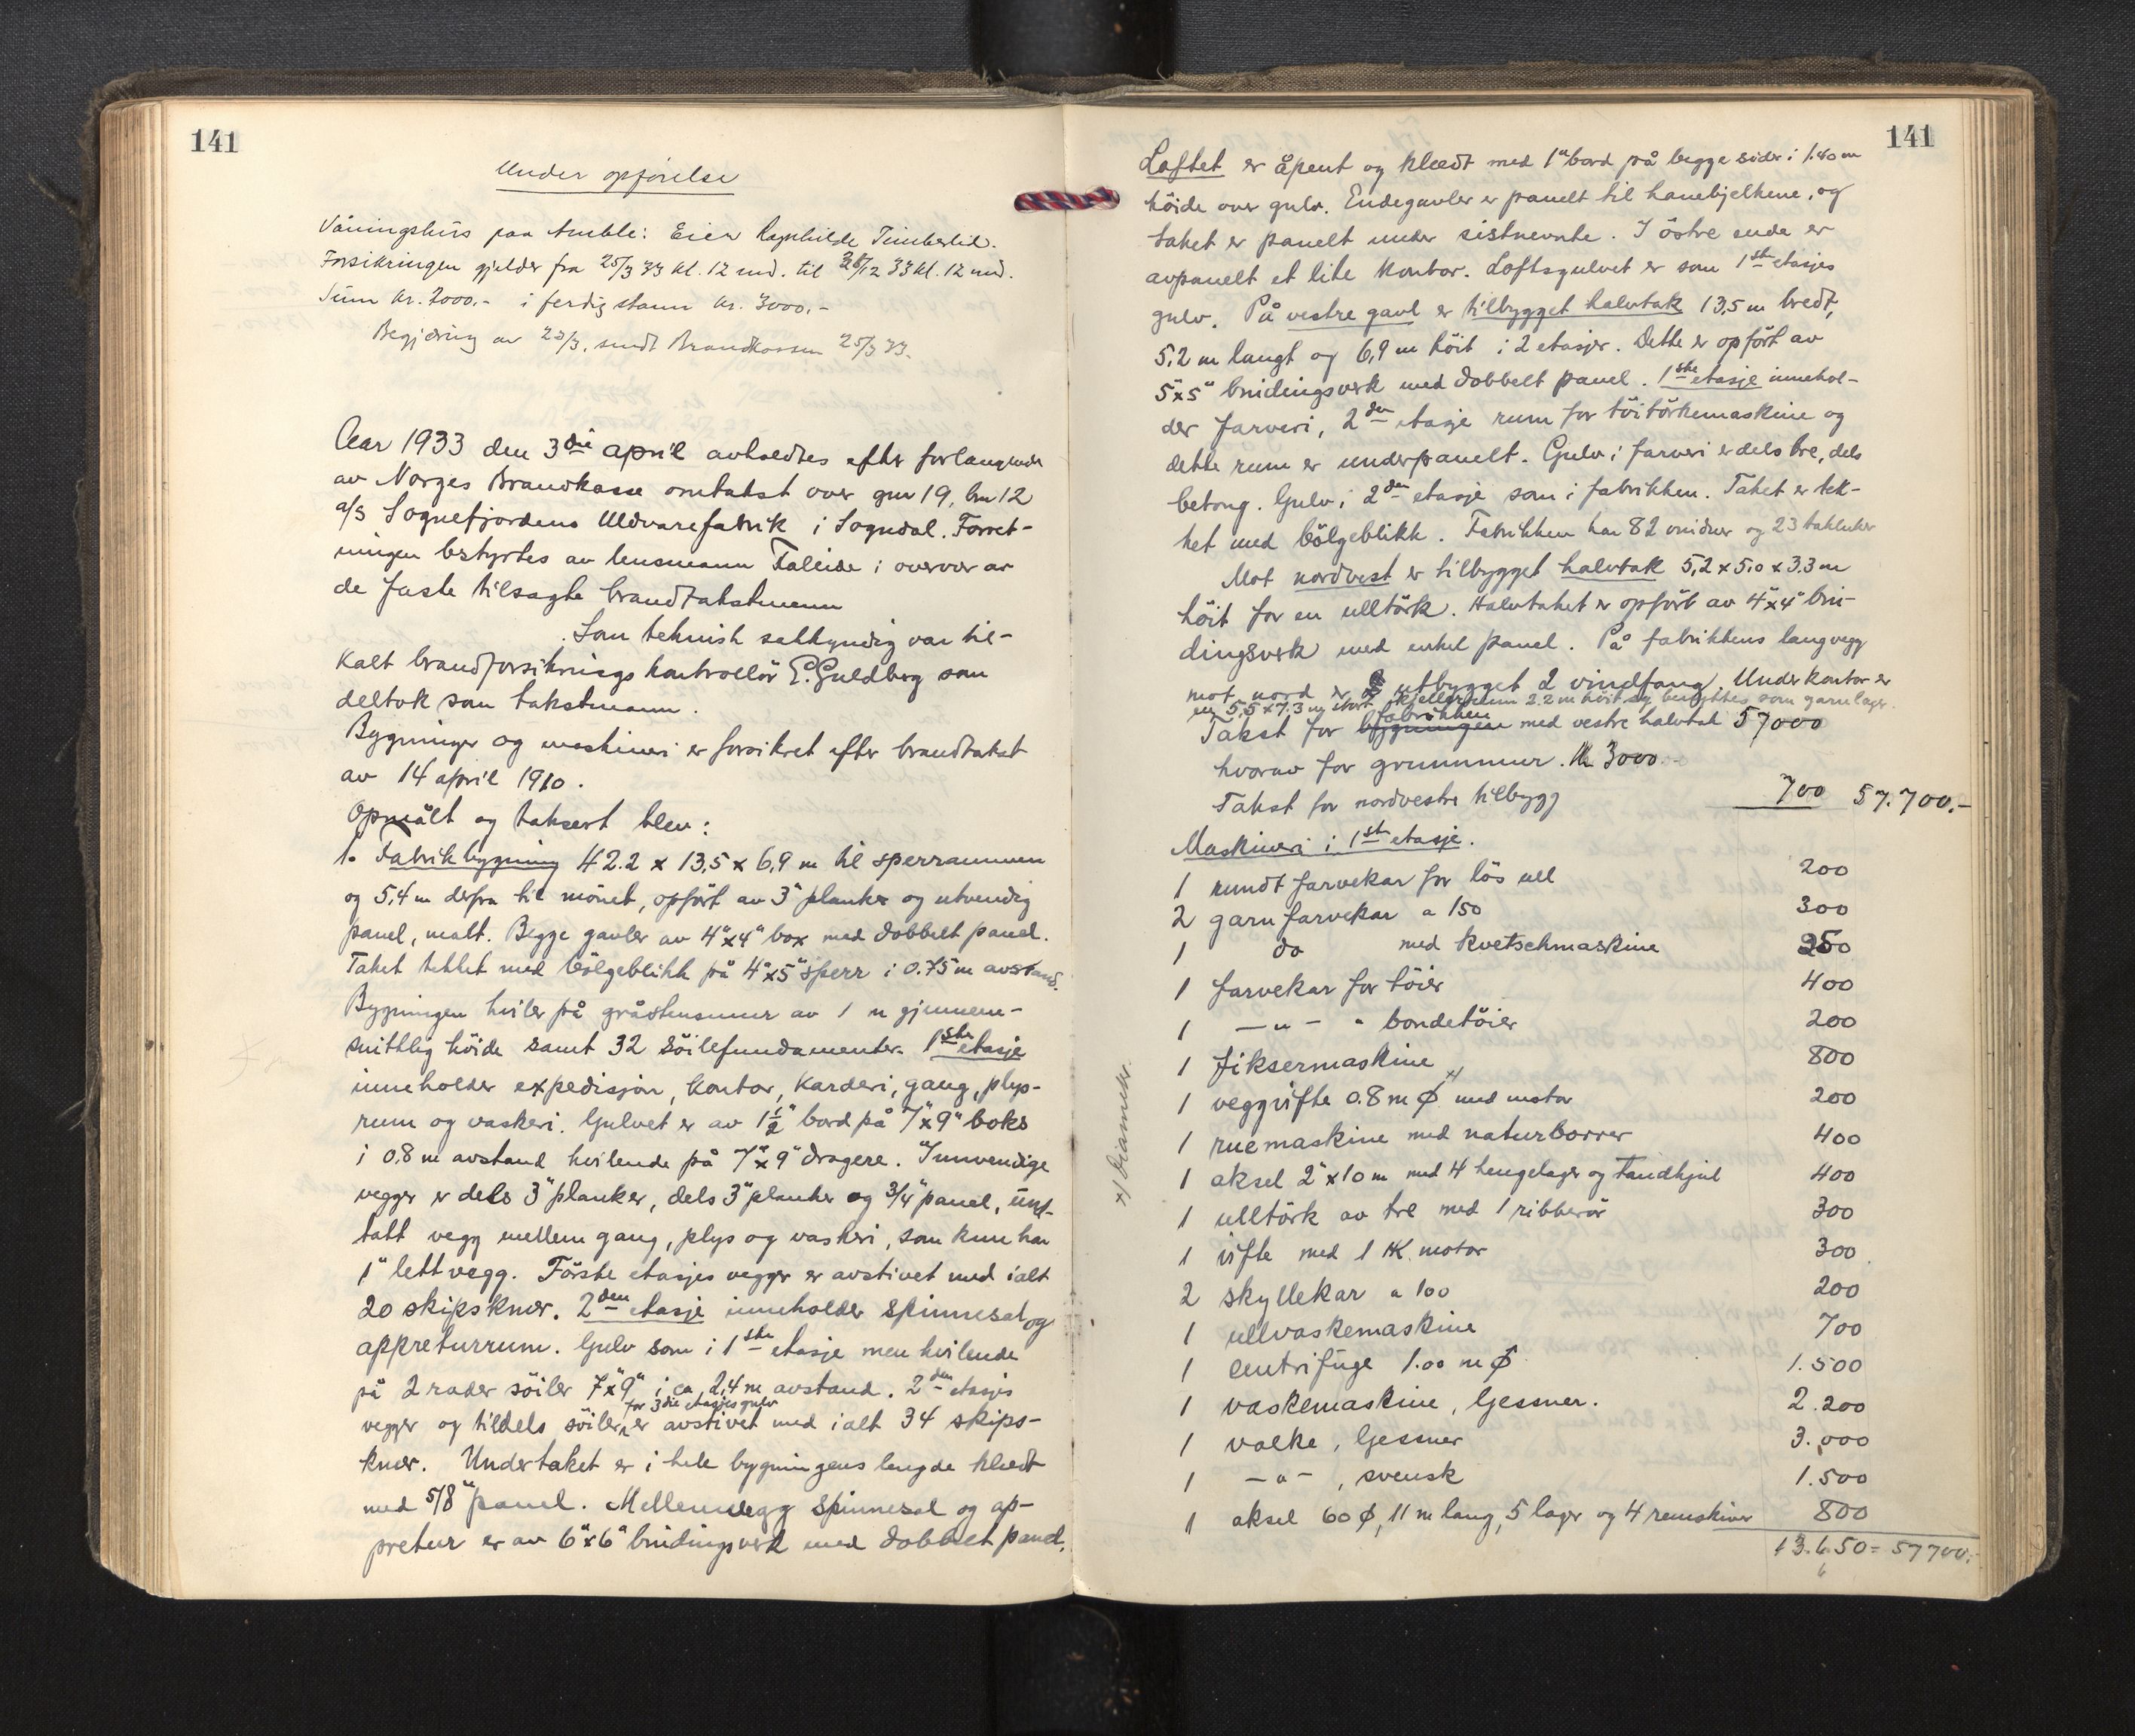 141
Under opførelse
Våningshus paa Amble: Eier Ragnhilde Timberlid.
Forsikringen gjelder fra 25/3 33 kl. 12 md. til 31/12 33 kl. 12 md.
Sum kr. 2000.- i ferdig stann kr. 3000.-
Begjæring av 23/3. sendt Brandkassen 25/3 33.
Aar 1933 den 3die april avholdtes efter forlangende
av Norges Brandkasse omtakst over gnr 19, bnr 12
a/s Sognefjordens Uldvarefabrik i Sogndal. Forret-
ningen bestyrtes av lensmann Faleide i overvær av
de faste tilsagte brandtakstmenn
. Som teknisk sakkyndig var til-
kalt brandforsikringskontrollör E. Guldberg som
deltok som takstmann.
Bygninger og maskineri er forsikret efter brandtakst
av 14 april 1910.
Opmålt og taksert blev:
1. Fabrikbygning 42.2 x 13,5 x 6,9 m til sperrammen
og 5,4 m derfra til mönet, opfört av 3" planker og utvendig
panel, malt. Begge gavler av 4"x4" box med dobbelt panel.
Taket tekket med bölgeblikk på 4"x5" sperr i 0.75 m avstand.
Bygningen hviler på gråstensmur av 1 m gjennem-
snittlig höide samt 32 söilefundamenter. 1ste etasje
inneholder expedisjon, kontor, karderi, gang, plys-
rum og vaskeri. Gulvet er av 1 1/2" bord på 7"x9" boks
i 0.8 m avstand hvilende på 7"x9" dragere. Innvendige
vegger er dels 3" planker, dels 3" planker og 3/4" panel, unt-
tatt vegg mellem gang, plys og vaskeri, som kun har
1" lettvegg. Förste etasjes vegger er avstivet med ialt
20 skipsknær. 2den etasje inneholder spinnesal og
appreturrum. Gulv som i 1ste etasje men hvilende
på 2 rader söiler 7"x9" i ca. 2,4 m avstand. 2den etasjes
for 3die etasjes gulv
vegger og tildels söiler, er avstivet med ialt 34 skips-
knær. Undertaket er i hele bygningens lengde klædt
med 5/8" panel. Mellemvegg spinnesal og ap-
pretur er av 6"x6" bindingsverk med dobbelt panel.
141
Loftet er åpent og klædt med 1" bord på begge sider i 1.40 m
höide over gulv. Endegavler er panelt til hanebjelkene, og
taket er panelt under sistnevnte. I östre ende er
avpanelt et lite kontor. Loftsgulvet er som 1ste etasjes
gulv. På vestre gavl er tilbygget halvtak 13,5 m bredt,
5,2 m langt og 6,9 m höit i 2 etasjer. Dette er opfört av
5"x5" bindingsverk med dobbelt panel. 1ste etasje innehol-
der farveri, 2den etasje rum for töitörkemaskine og
dette rum er underpanelt. Gulv i farveri er dels tre, dels
betong. Gulv i 2den etasje som i fabrikken. Taket er tek-
ket med bölgeblikk. Fabrikken har 82 vinduer og 23 takluker
Mot nordvest er tilbygget halvtak 5,2 x 5,0 x 3.3 m
höit for en ulltörk. Halvtaket er opfört av 4"x4" bin-
dingsverk med enkel panel. På fabrikkens langvegg
mot nord er utbygget 2 vindfang. Under kontor er
en 5,5 x 7.3 m stort kjellerrum 2.2 m höit og benyttes som garnlager.
fabrikken
Takst for bygningen med vestre halvtak 57000
hvorav for grunnmur. Kr 3000.-
Takst for nordvestre tilbygg 700 57.700.-
Maskineri i 1ste etasje.
1 rundt farvekar for lös ull 200
2 garnfarvekar a 150 300
1 do med kvetschmaskine 250
1 farvekar for töier 400
1 — " — " bondetöier 200
1 fiksermaskine 800
1 veggvifte 0.8 m ϕ x) med motor 200
1 ruemaskine med naturborrer 400
1 aksel 2" x 10 m med 4 hengelager og tandhjul 400
1 ulltörk av tre med 1 ribberör 300
1 vifte med 1 HK. motor 300
2 skyllekar a 100 200
1 ullvaskemaskine 700
1 centrifuge 1.00 m ϕ 1.500
1 vaskemaskine, Gessner. 2.200
1 valke, Gessner 3.000
1 — " — , svensk 1.500
1 aksel 60 ϕ, 11 m lang, 5 lager og 4 remskiver 800
13.650= 57700.-
x) Diameter.